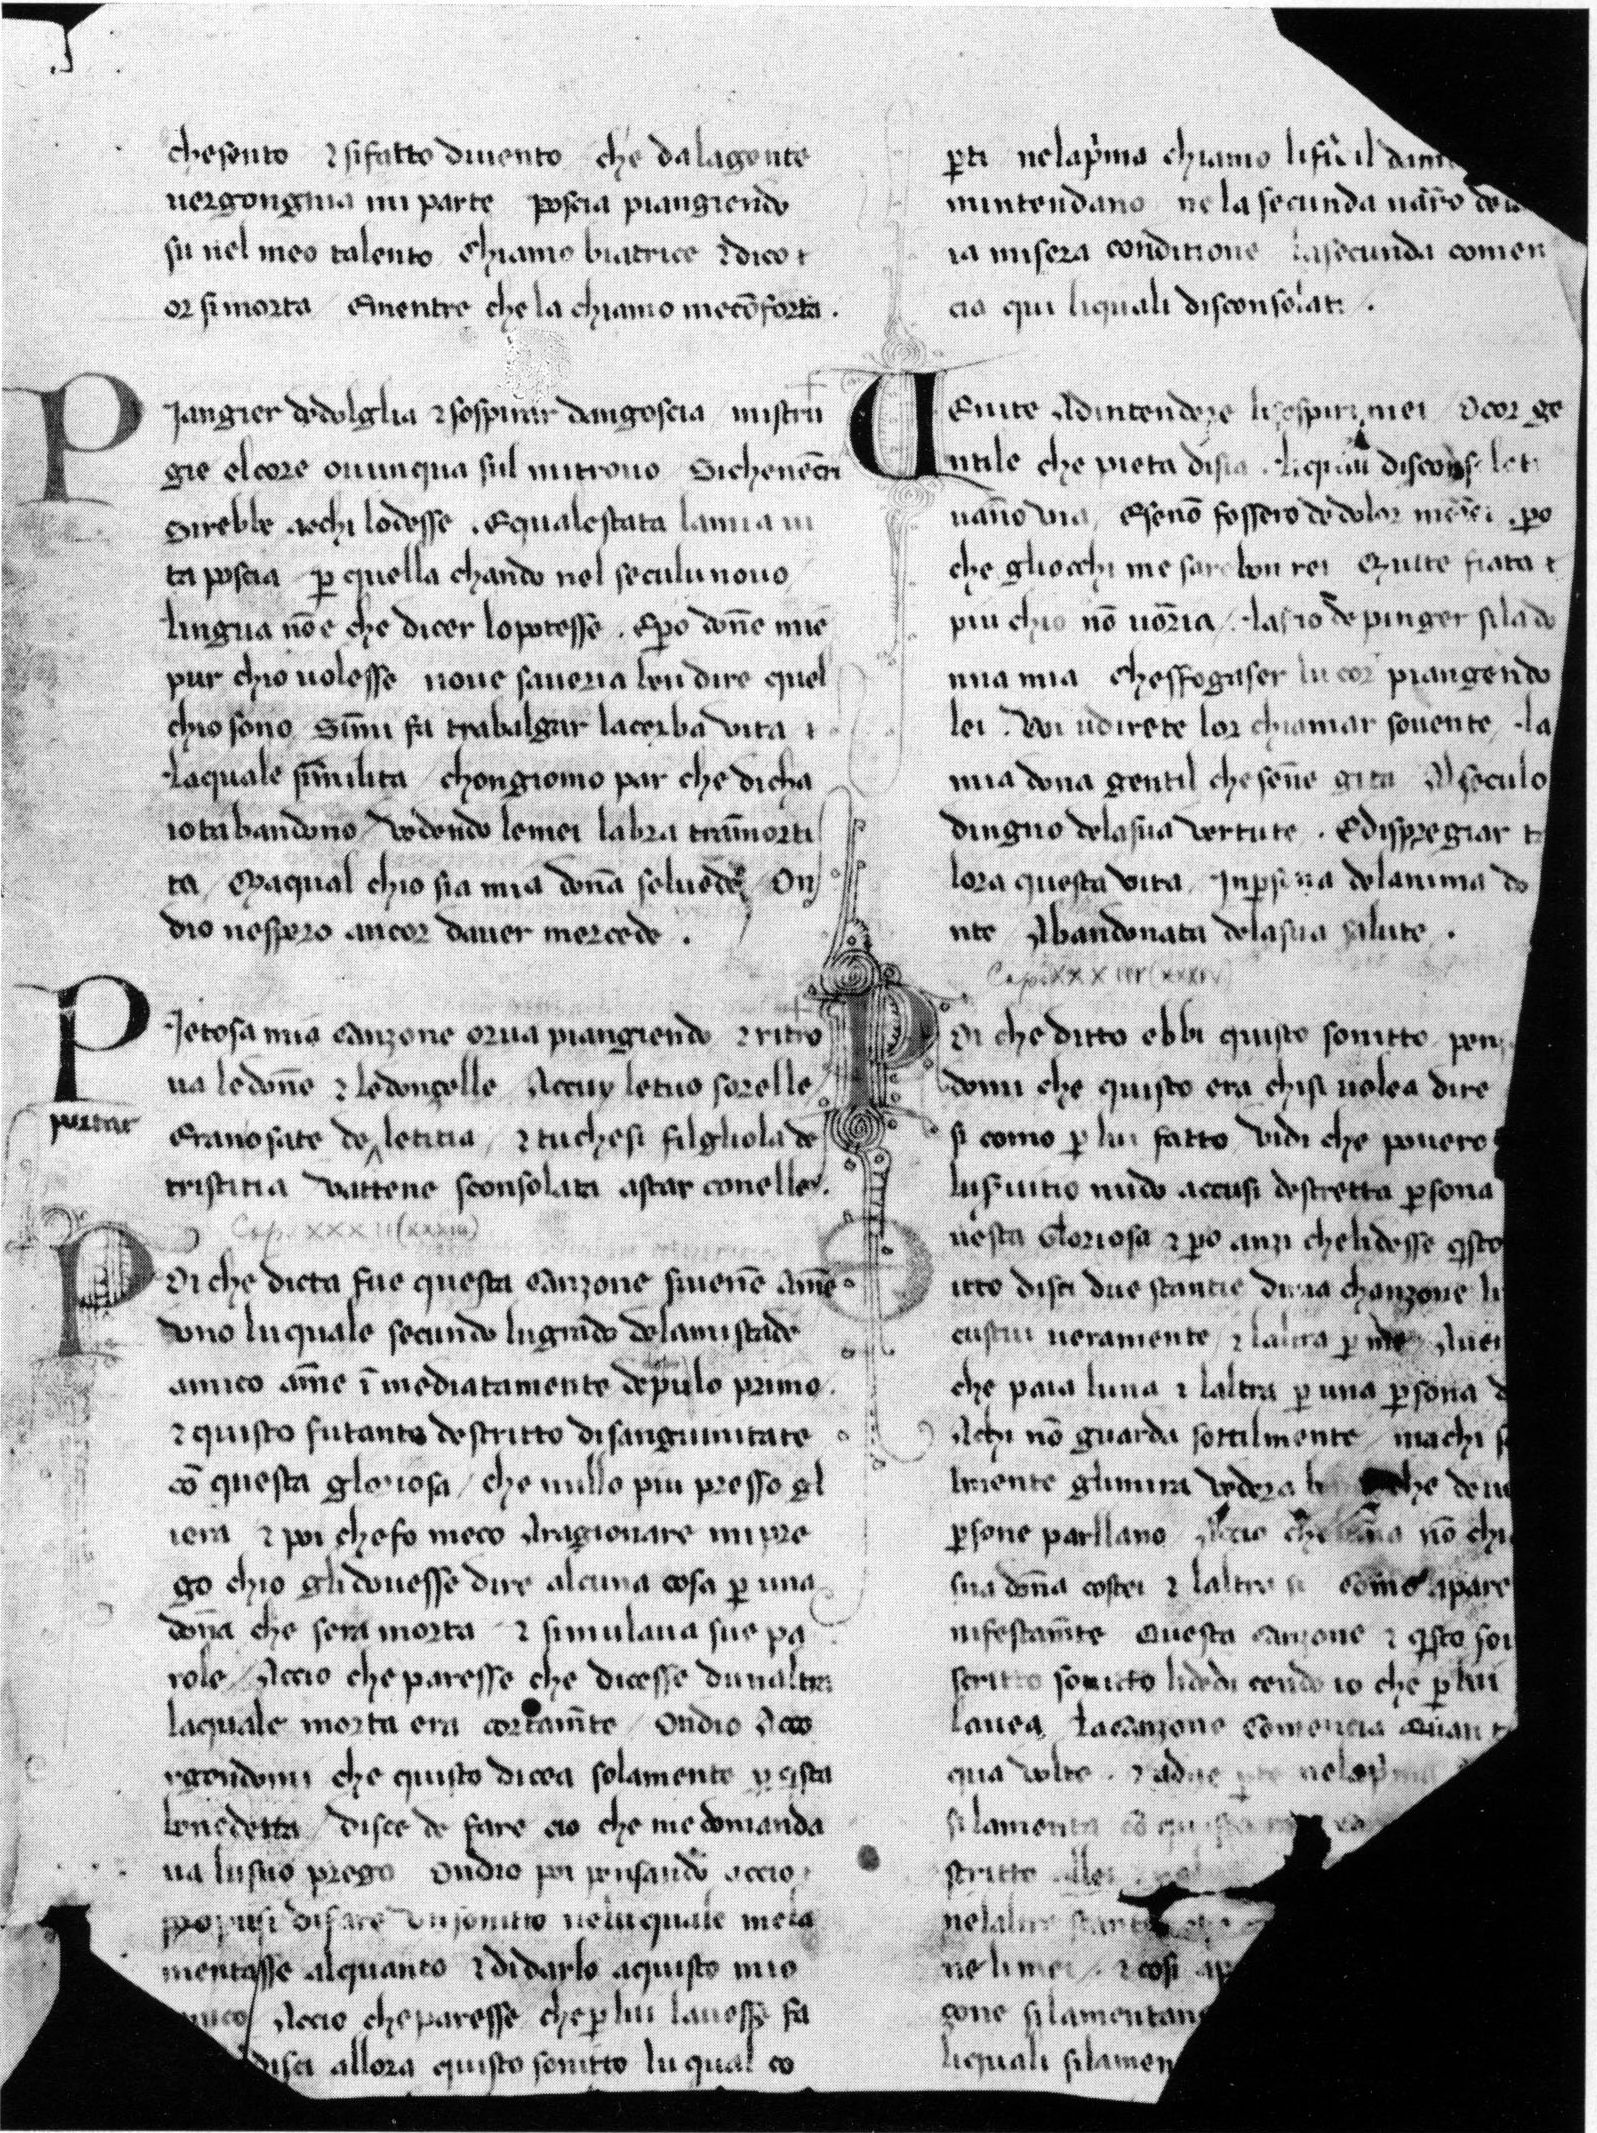 chesento ⁊ sifatto diuento che dalagente
uergongnia mi parte poscia piangiendo
su nel meo talento Chiamo biatrice ⁊ dico
or si morta Ementre che la chiamo mecōforta.
Piangier dedolglia ⁊ sospirar dangoscia mistru
gie elcore ouunqua sul mitrouo Sichenen̄cri
Sirebbe achi lodesse. Equalestata lamia ui
ta poscia ꝑ quella chando nel seculu nouo
lingua nōe che dicer lo potesse. Epo don̄e mie
pur chio uolesse noue saueria ben dire quel
chio sono Sim̄i fa trabalgar lacerba vita
laquale sim̄ilita chongiomo par che dicha
iotabandono vedendo lemei labra tram̄orti
ta Maqual chio sia mia don̄a seluede On
dio nespero ancor dauer mercede.
Pietosa mia canzone or ua piangiendo ⁊ ritro
ua ledon̄e ⁊ ledonçelle Accuy letuo sorelle
portar
Erano sate de letitia ⁊ tuchesi filgliola de
tristitia vattene sconsolata astar conelle.
Cap. XXXII (XXXIII)
Poi che dicta fue questa canzone siuen̄e am̄e
vono luquale secundo lugrādo delamistade
amico am̄e ī mediatamente depulo primo.
⁊ quisto futanto destritto disanguinitate
cō questa gloriosa che nullo piu presso gl
iera ⁊ poi chefo meco Aragionare mi pre
go chio glidouesse dire alcuna cosa ꝑ una
don̄a che sera morta ⁊ simulaua sue pa
role Accio che paresse che dicesse dunaltra
laquale morta era cortam̄te Ondio Acco
rgendomi che quisto dicea solamente ꝑ q̄sta
benedetta disce de fare cio che me domanda
ua lusuo prego Ondio poi pensando accio
propusi difare vn sonitto nelu quale mela
mentasse alquanto ⁊ didarlo aquisto mio
amico Accio che paresse che ꝑ lui lauesse fa
disci allora quisto sonitto lu qual co
ꝑti nelap̄ma chiamo lifi
mintendano ne la secunda narro
ia misera conditione lasecunda comen
cia qui liquali disconsolati.
Uenite Adintendere lisospiri mei Ocor ge
ntile che pieta disia. liquali disconsolati
uan̄o via Esenō fossero dedolor
che gliocchi me sarebon rei Multe fiata
piu chio nō uorria lasso de pinger sila do
nna mia chesfogaser lu cor piangendo
lei. Voi udirete lor chiamar souente la
mia dona gentil chesen̄e gita Al seculo
dingno delasua vertute. Edispregiar
lora questa vita Inpersona delanima do
nte Abandonata delasua salute.
Cap. XXXIII (XXXIV)
Poi che ditto ebbi quisto sonitto
domi che quisto era chisi uolea dire
si como ꝑ lui fatto Vidi che pouero
lusiuitio nudo accusi destretta ꝑsona
uesta Gloriosa ⁊ po anzi chelidesse q̄sto
itto disci due stantie duna chanzone
custui ueramente ⁊ laltra ꝑ me
che paia luna ⁊ laltra ꝑ una ꝑsona
Achi nō guarda sottilmente machi
lmente glimira vedera che
ꝑsone parllano Accio che luna nō
sua don̄a costei ⁊ laltra si come apare
nifestam̄te Questa canzone ⁊ q̄sto
scritto sonitto lidedi cendo io che ꝑ lui
lauea La canzone comencia
qua volte.
si lamenta cō
stritto
nelaltra
ne li mei. ⁊ cosi
çone si lamentan
liquali silamen